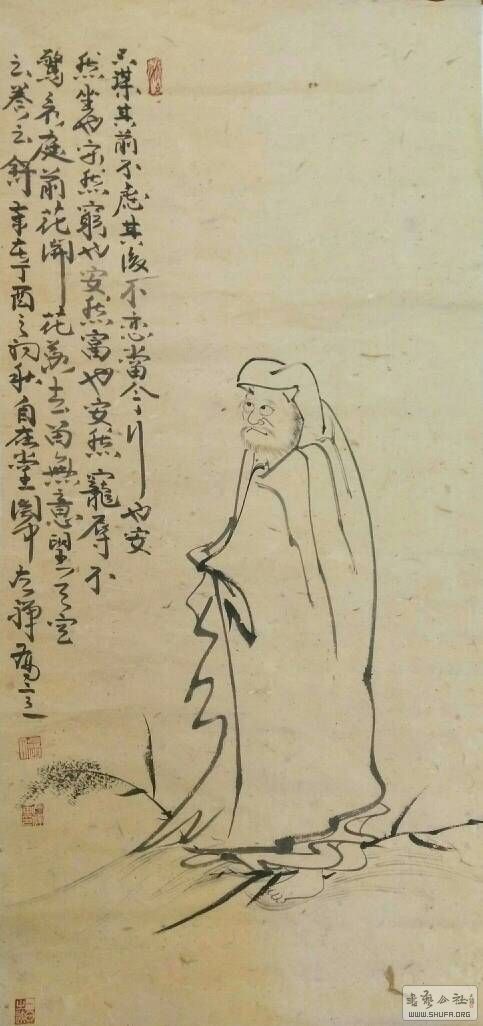 不謀其前不慮其後不恋當今行也安
然坐也安然窮也安然富也安然寵辱不
驚看庭前花開花落去留無意望天空
云卷云舒歲在丁酉之初秋自在堂
書藝公社
WWW.SHUFA.ORG